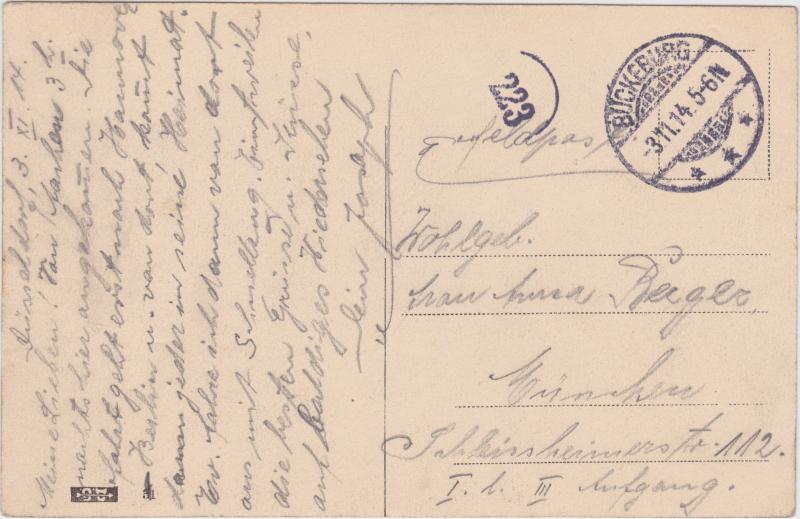 Düsseldorf, 3. XI. 14.
Meine Lieben! Von Aachen 3 h.
nachts hier angekom̄en. Die
Fahrt geht erst nach Hannover
Berlin u. von dort kom̄t
dann jeder in seine Heimat.
Ev. fahre ich dann von dort
aus mit Schnellzug. Einstweilen
die besten Grüsse u. Küsse,
auf baldiges Wiedersehen
Dein Joseph
223
BÜCKEBURG
-3.11.14.5-6N
Feldpost
Wohlgeb.
Frau Anna Berger,
München
Schleissheimerstr. 112.
I. l. III Aufgang.